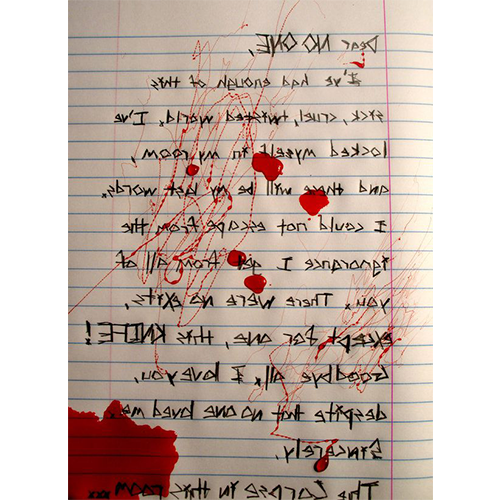 Dear NO ONE,
I've had enough of this
sick, cruel, twisted world. I've
locked myself in my room,
and these will be my last words.
I could not escape from the
ignorance I get from all of
you. There were no exits,
except for one, this KNIFE!
Goodbye all, I love you,
despite that no one loved me.
Sincerely,
The Corpse in this room...